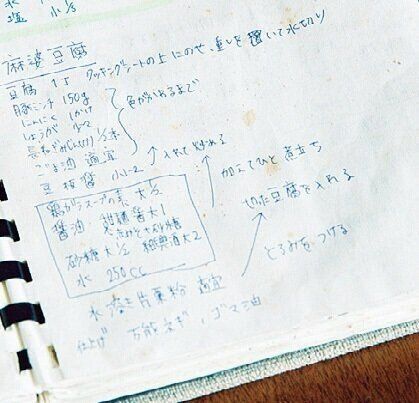 水
塩 小1/3
麻婆豆腐
豆腐 1丁 クッキングシートの上にのせ、重しを置いて水切り
豚ミンチ 150g
にんにく 1かけ 色がかわるまで
しょうが 少々
長ねぎ(みじん切り) 1/2本
ごま油 適宜
豆板醤 小1~2 入れて炒める
鶏がらスープの素 大1/2 加えてひと煮立ち
醤油 甜麺醤大1
砂糖大1/2 紹興酒大2 切った豆腐を入れる
水 250cc
水溶き片栗粉 適宜 とろみをつける
仕上げ 万能ネギ・ゴマ油